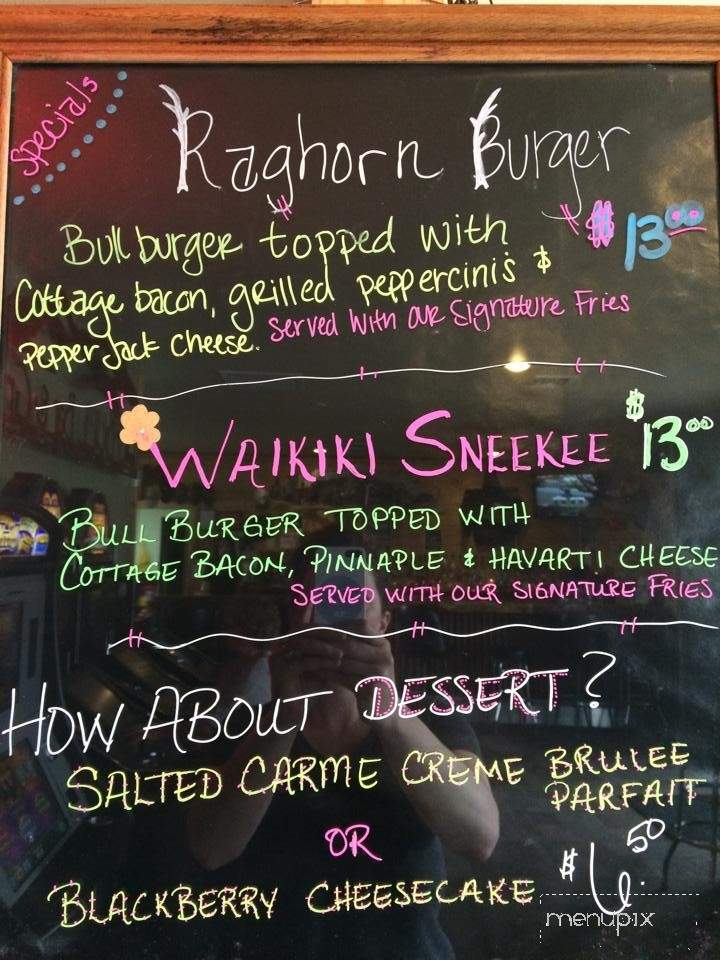 Specials
Raghorn Burger
$13.00
Bull burger topped with
Cottage bacon, grilled peppercinis &
pepper Jack cheese. Served with our Signature Fries
WAIKIKI SNEEKEE $13.00
BULL BURGER TOPPED WITH
COTTAGE BACON, PINNAPLE & HAVARTI CHEESE
SERVED WITH OUR SIGNATURE FRIES
HOW ABOUT DESSERT?
SALTED CARME CREME BRULEE
PARFAIT
OR
$6.50
BLACKBERRY CHEESECAKE
menupix